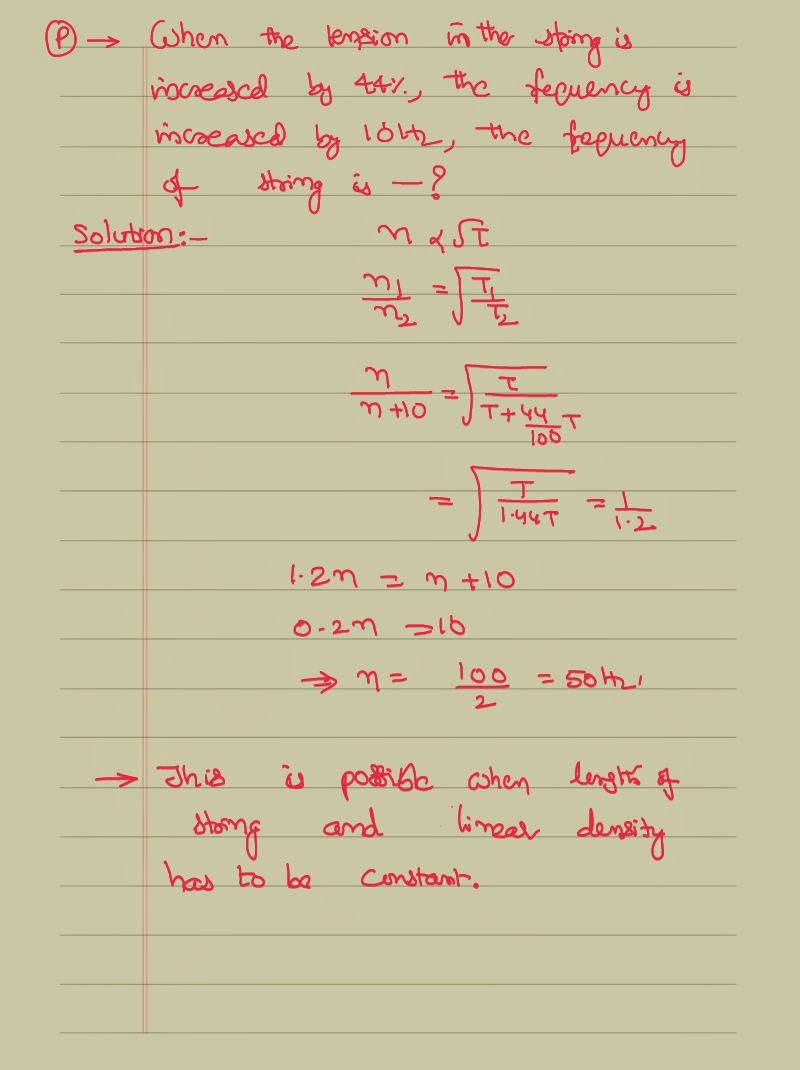 P → When the tension in the string is
increased by 44%, the fequency is
increased by 10Hz, the fequency
of string is — ?
Solution:-
n ∝ √T
n1/n2 = √(T1/T2)
n/(n+10) = √(T/(T+44/100 T))
= √(T/1.44T) = 1/1.2
1.2n = n+10
0.2n = 10
⇒ n = 100/2 = 50Hz,
→ This is possible when length of
string and linear density
has to be constant.